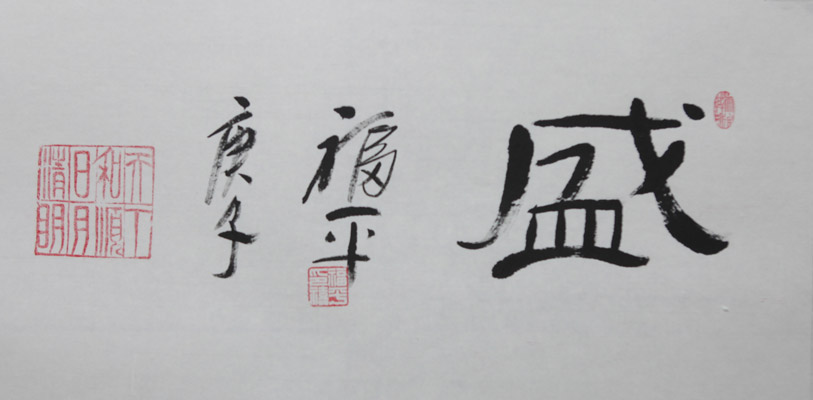 盛
福平
庚子
天下
和順
日月
清明